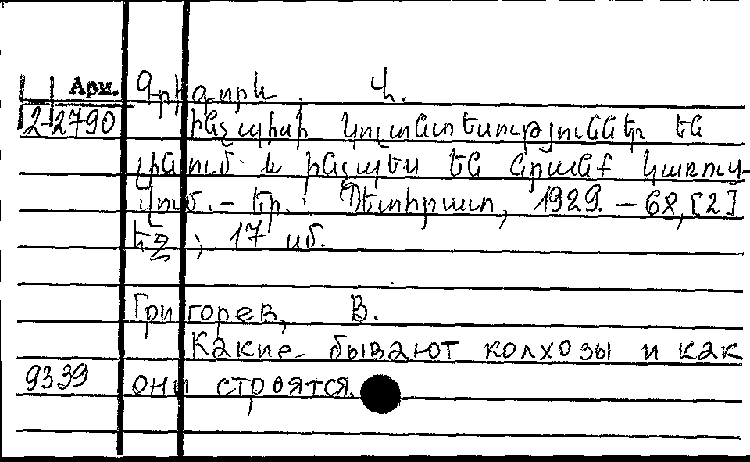 Арм. Գրիգորև Վ.
12-2790 Ինչպիսի կոլտնտեսություններ են
լինում և ինչպես են նրանք կառուց-
վում. - Եր. : Պետհրատ, 1929. - 68, [2]
եջ ; 17 սմ.
Григорев, В.
Какие бывают колхозы и как
9339 они строятся.